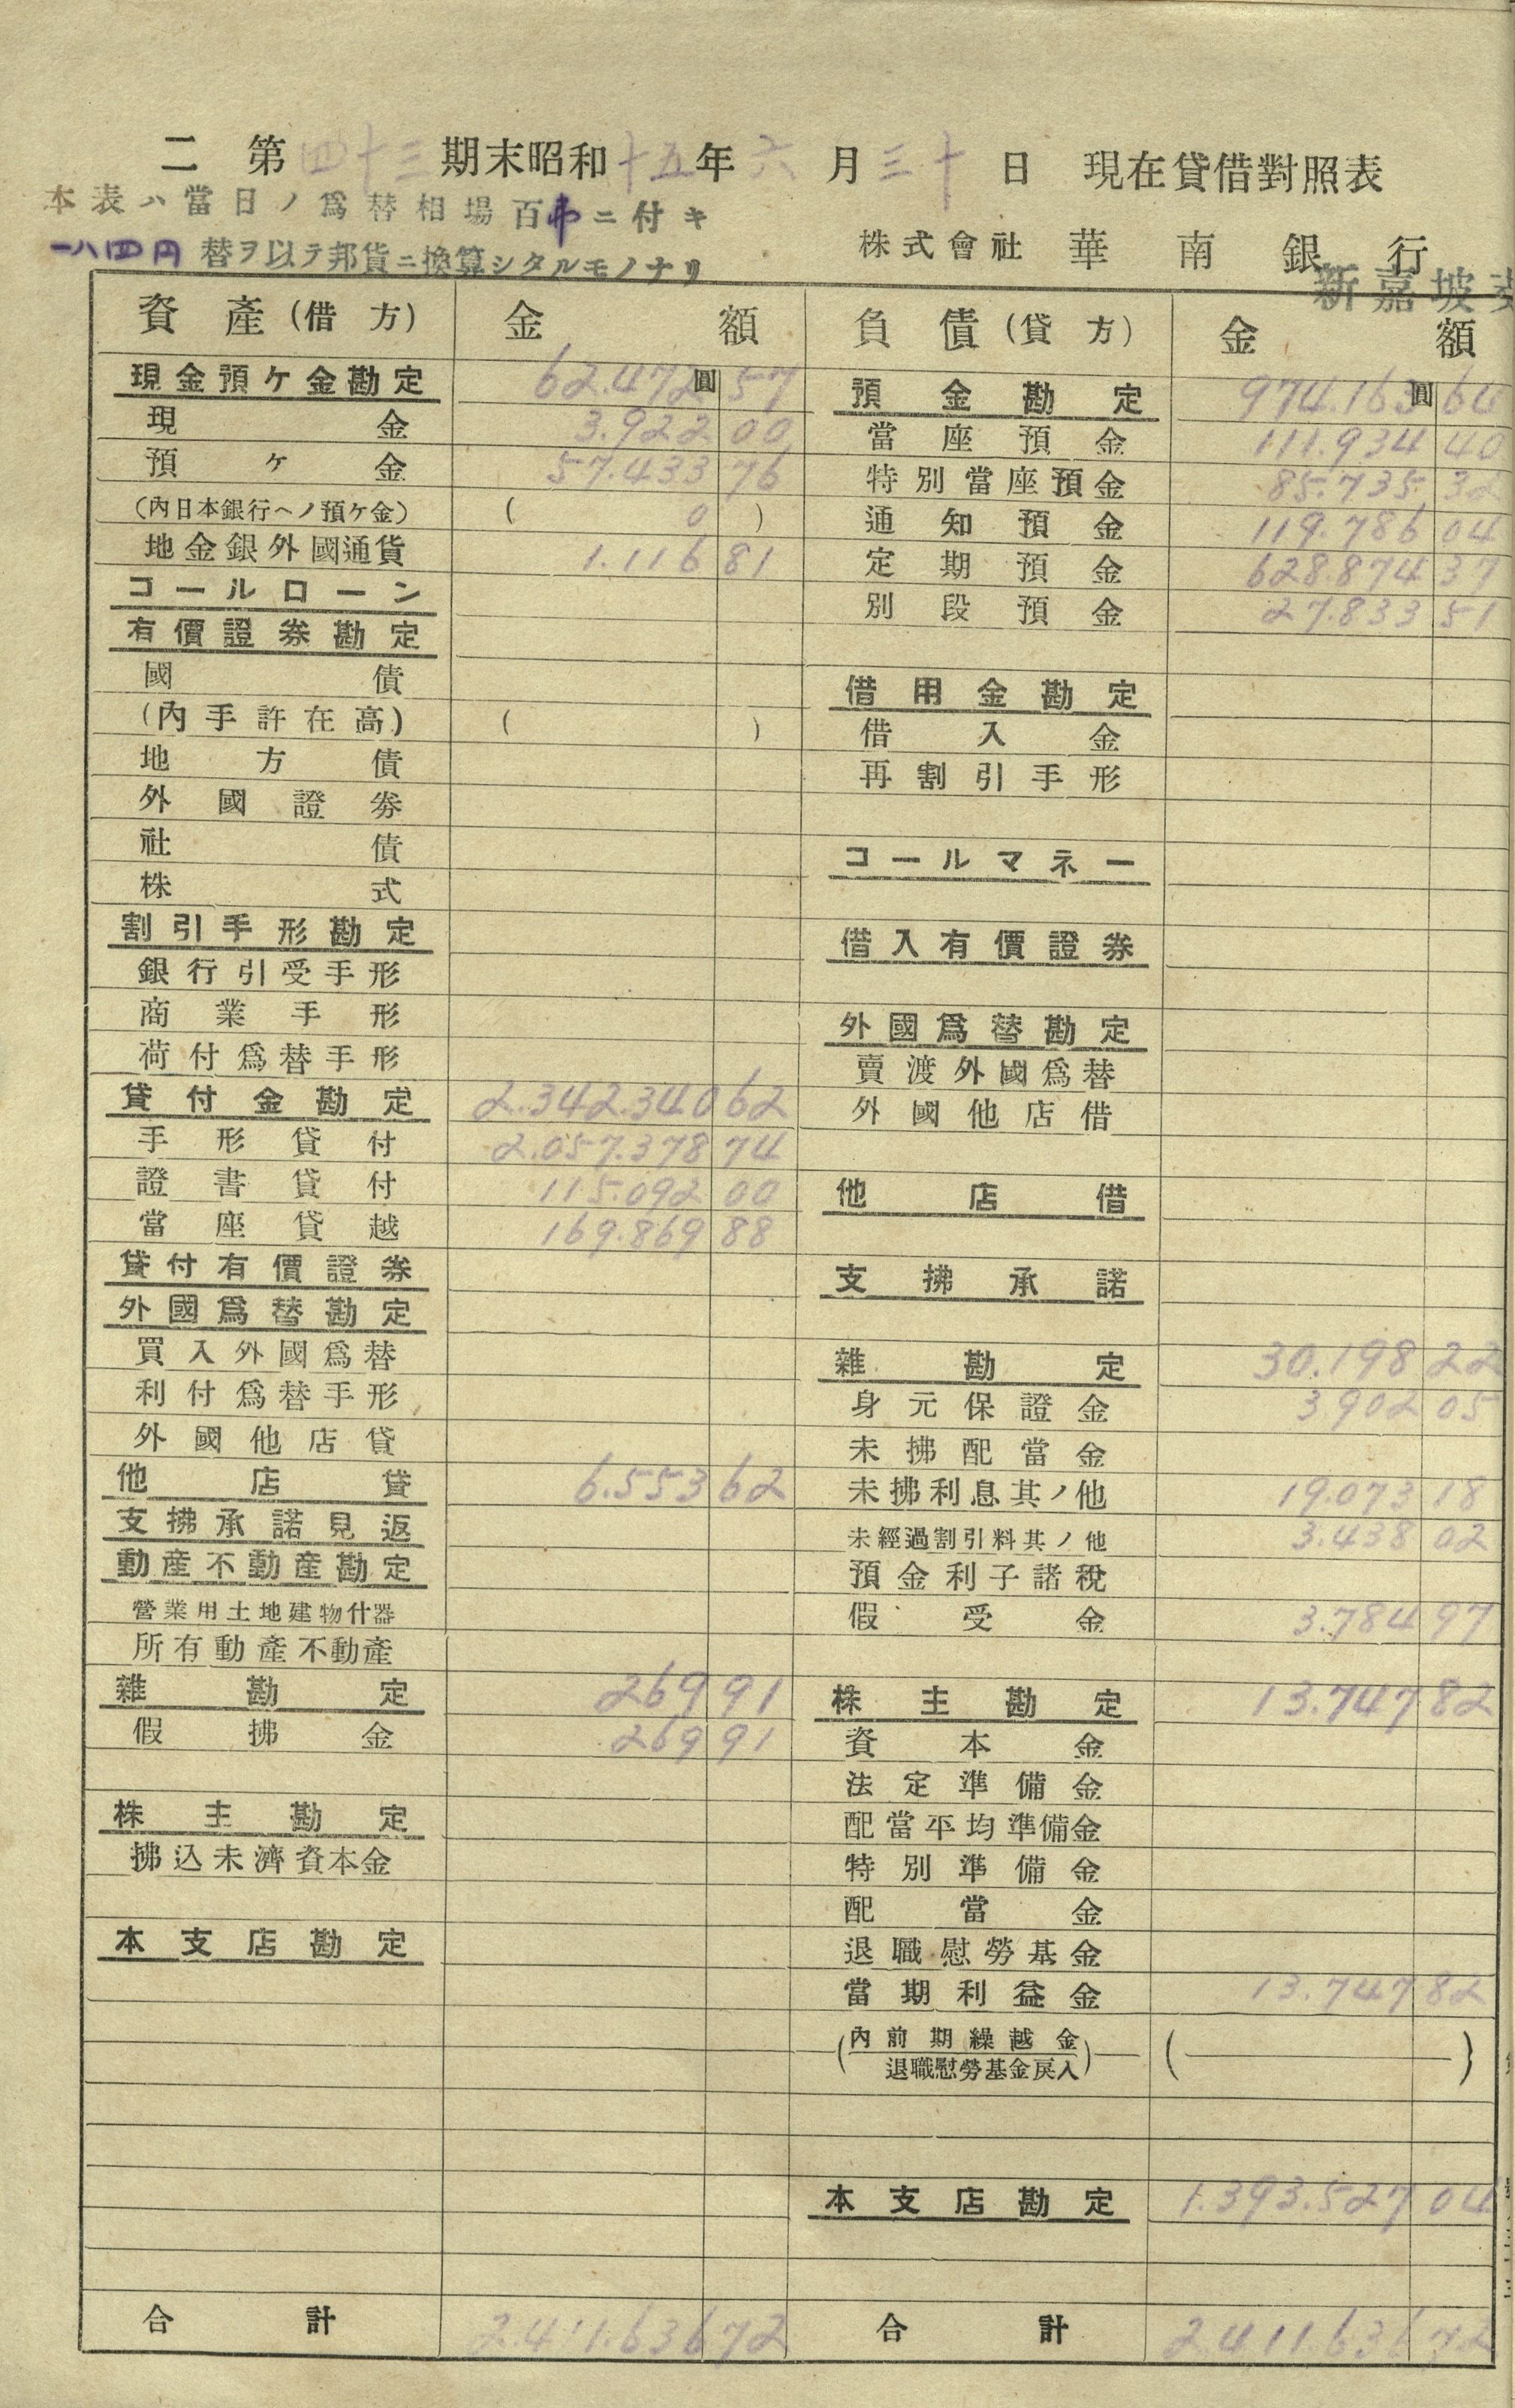 二 第四十三期末昭和十五年六月三十日 現在貸借對照表
本表ハ當日ノ爲替相場百弗ニ付キ
一八四円替ヲ以テ邦貨ニ換算シタルモノナリ
株式會社 華南銀行
新嘉坡
資產(借方) 金額 負債(貸方) 金額
現金預ケ金勘定 62.472圓57
現金 3.922 00
預ケ金 57.433 76
(內日本銀行ヘノ預ケ金) ( 0 )
地金銀外國通貨 1.116 81
コールローン
有價證券勘定
國債
(內手許在高) ( )
地方債
外國證券
社債
株式
割引手形勘定
銀行引受手形
商業手形
荷付爲替手形
貸付金勘定 2.342.340 62
手形貸付 2.057.378 74
證書貸付 115.092 00
當座貸越 169.869 88
貸付有價證券
外國爲替勘定
買入外國爲替
利付爲替手形
外國他店貸
他店貸 6.553 62
支拂承諾見返
動產不動產勘定
營業用土地建物什器
所有動產不動產
雜勘定 269 91
假拂金 269 91
株主勘定
拂込未濟資本金
本支店勘定
合計 2.411.636 72
預金勘定 974.163圓64
當座預金 111.934 40
特別當座預金 85.735 32
通知預金 119.786 04
定期預金 628.874 37
別段預金 27.833 51
借用金勘定
借入金
再割引手形
コールマネー
借入有價證券
外國爲替勘定
賣渡外國爲替
外國他店借
他店借
支拂承諾
雜勘定 30.198 22
身元保證金 3.902 05
未拂配當金
未拂利息其ノ他 19.073 18
未經過割引料其ノ他 3.438 02
預金利子諸稅
假受金 3.784 97
株主勘定 13.747 82
資本金
法定準備金
配當平均準備金
特別準備金
配當金
退職慰勞基金
當期利益金 13.747 82
(內前期繰越金
退職慰勞基金戾入) ( )
本支店勘定 1.393.527 04
合計 2.411.636 72